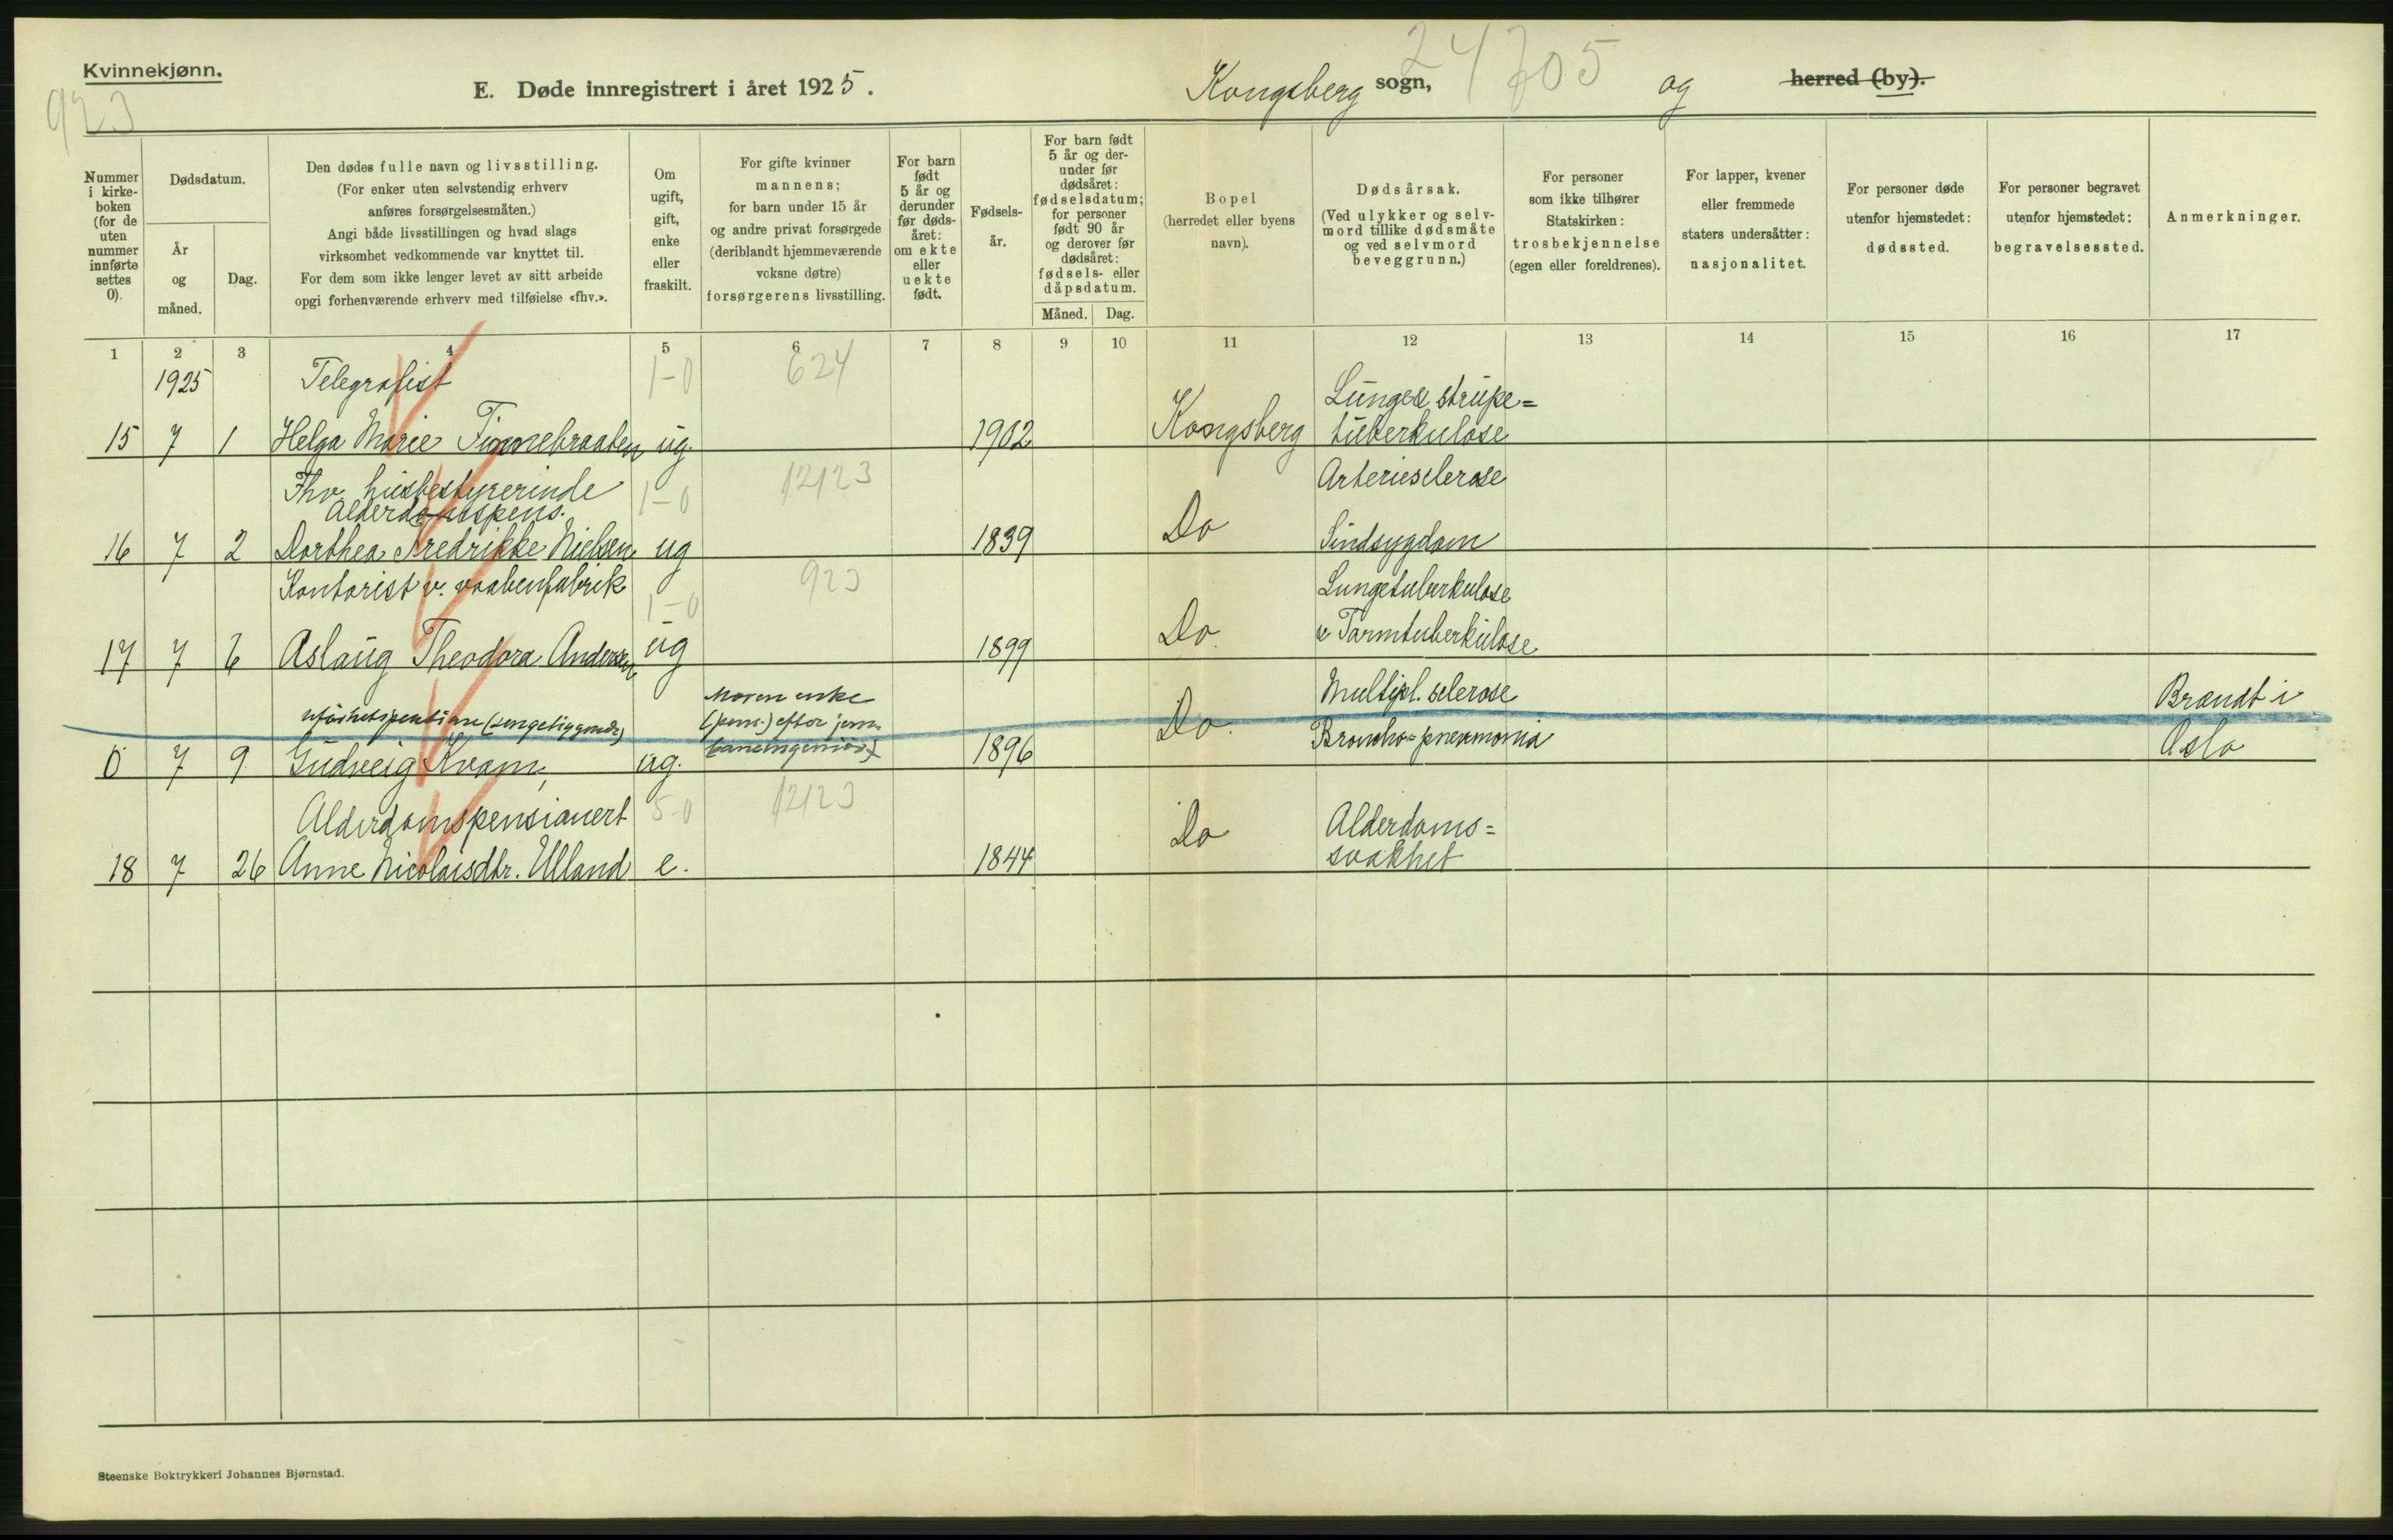 Kvinnekjønn.
923
E. Døde innregistrert i året 1925.
Kongsberg sogn, 24705 og herred (by).
Nummer i kirke-boken (for de uten nummer innførte settes 0).
Dødsdatum.
År og måned.
Dag.
Den dødes fulle navn og livsstilling.
(For enker uten selvstendig erhverv
anføres forsørgelsesmåten.)
Angi både livsstillingen og hvad slags
virksomhet vedkommende var knyttet til.
For dem som ikke lenger levet av sitt arbeide
opgi forhenværende erhverv med tilføielse «fhv.».
Om ugift, gift, enke eller fraskilt.
For gifte kvinner
mannens;
for barn under 15 år
og andre privat forsørgede
(deriblandt hjemmeværende
voksne døtre)
forsørgerens livsstilling.
For barn født 5 år og derunder før døds-året: om ekte eller uekte født.
Fødsels-år.
For barn født 5 år og der-under før dødsåret: fødselsdatum; for personer født 90 år og derover før dødsåret: fødsels- eller dåpsdatum.
Måned. Dag.
Bopel
(herredet eller byens
navn).
Dødsårsak.
(Ved ulykker og selv-
mord tillike dødsmåte
og ved selvmord
beveggrunn.)
For personer
som ikke tilhører
Statskirken:
trosbekjennelse
(egen eller foreldrenes).
For lapper, kvener
eller fremmede
staters undersåtter:
nasjonalitet.
For personer døde
utenfor hjemstedet:
dødssted.
For personer begravet
utenfor hjemstedet:
begravelsessted.
Anmerkninger.
1 2 3 4 5 6 7 8 9 10 11 12 13 14 15 16 17
1925 Telegrafist 1-0 624 Lunge & strupe=
15 7 1 Helga Marie Finnebraaten ug. 1902 Kongsberg tuberkulose
Fhv. husbestyrerinde 1-0 12123 Arteriesclerose
Alderdomspens.
16 7 2 Dorthea Fredrikke Nielsen ug 1839 Do Sindsygdom
Kontorist v. vaabenfabrik 1-0 923 Lungetuberkulose
17 7 6 Aslaug Theodora Andersen ug 1899 Do. & Tarmtuberkulose
Moren enke
(pens.) efter jern-
baneingeniør)
(sengeliggende) Multipl. sclerose Brændt i
0 7 9 Gudveig Kvam, ug. 1896 Do. Broncho=pneumonia Oslo
Alderdomspensionert 5-0 12123 Alderdoms=
18 7 26 Anne Nicolaisdtr. Ulland e. 1844 Do svakhet
Steenske Boktrykkeri Johannes Bjørnstad.